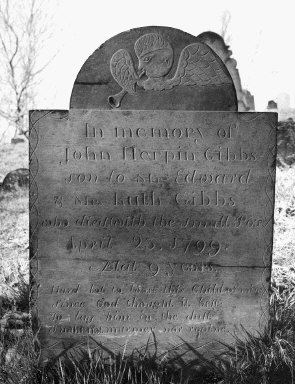 In memory of
John Herpin Gibbs
son to Mr. Edward
& Mrs. Ruth Gibbs
who died with the Small Pox
April 25, 1799
Ætat 9 years
this Child
since God thought it best
To lay him in the dust
murmer nor repine